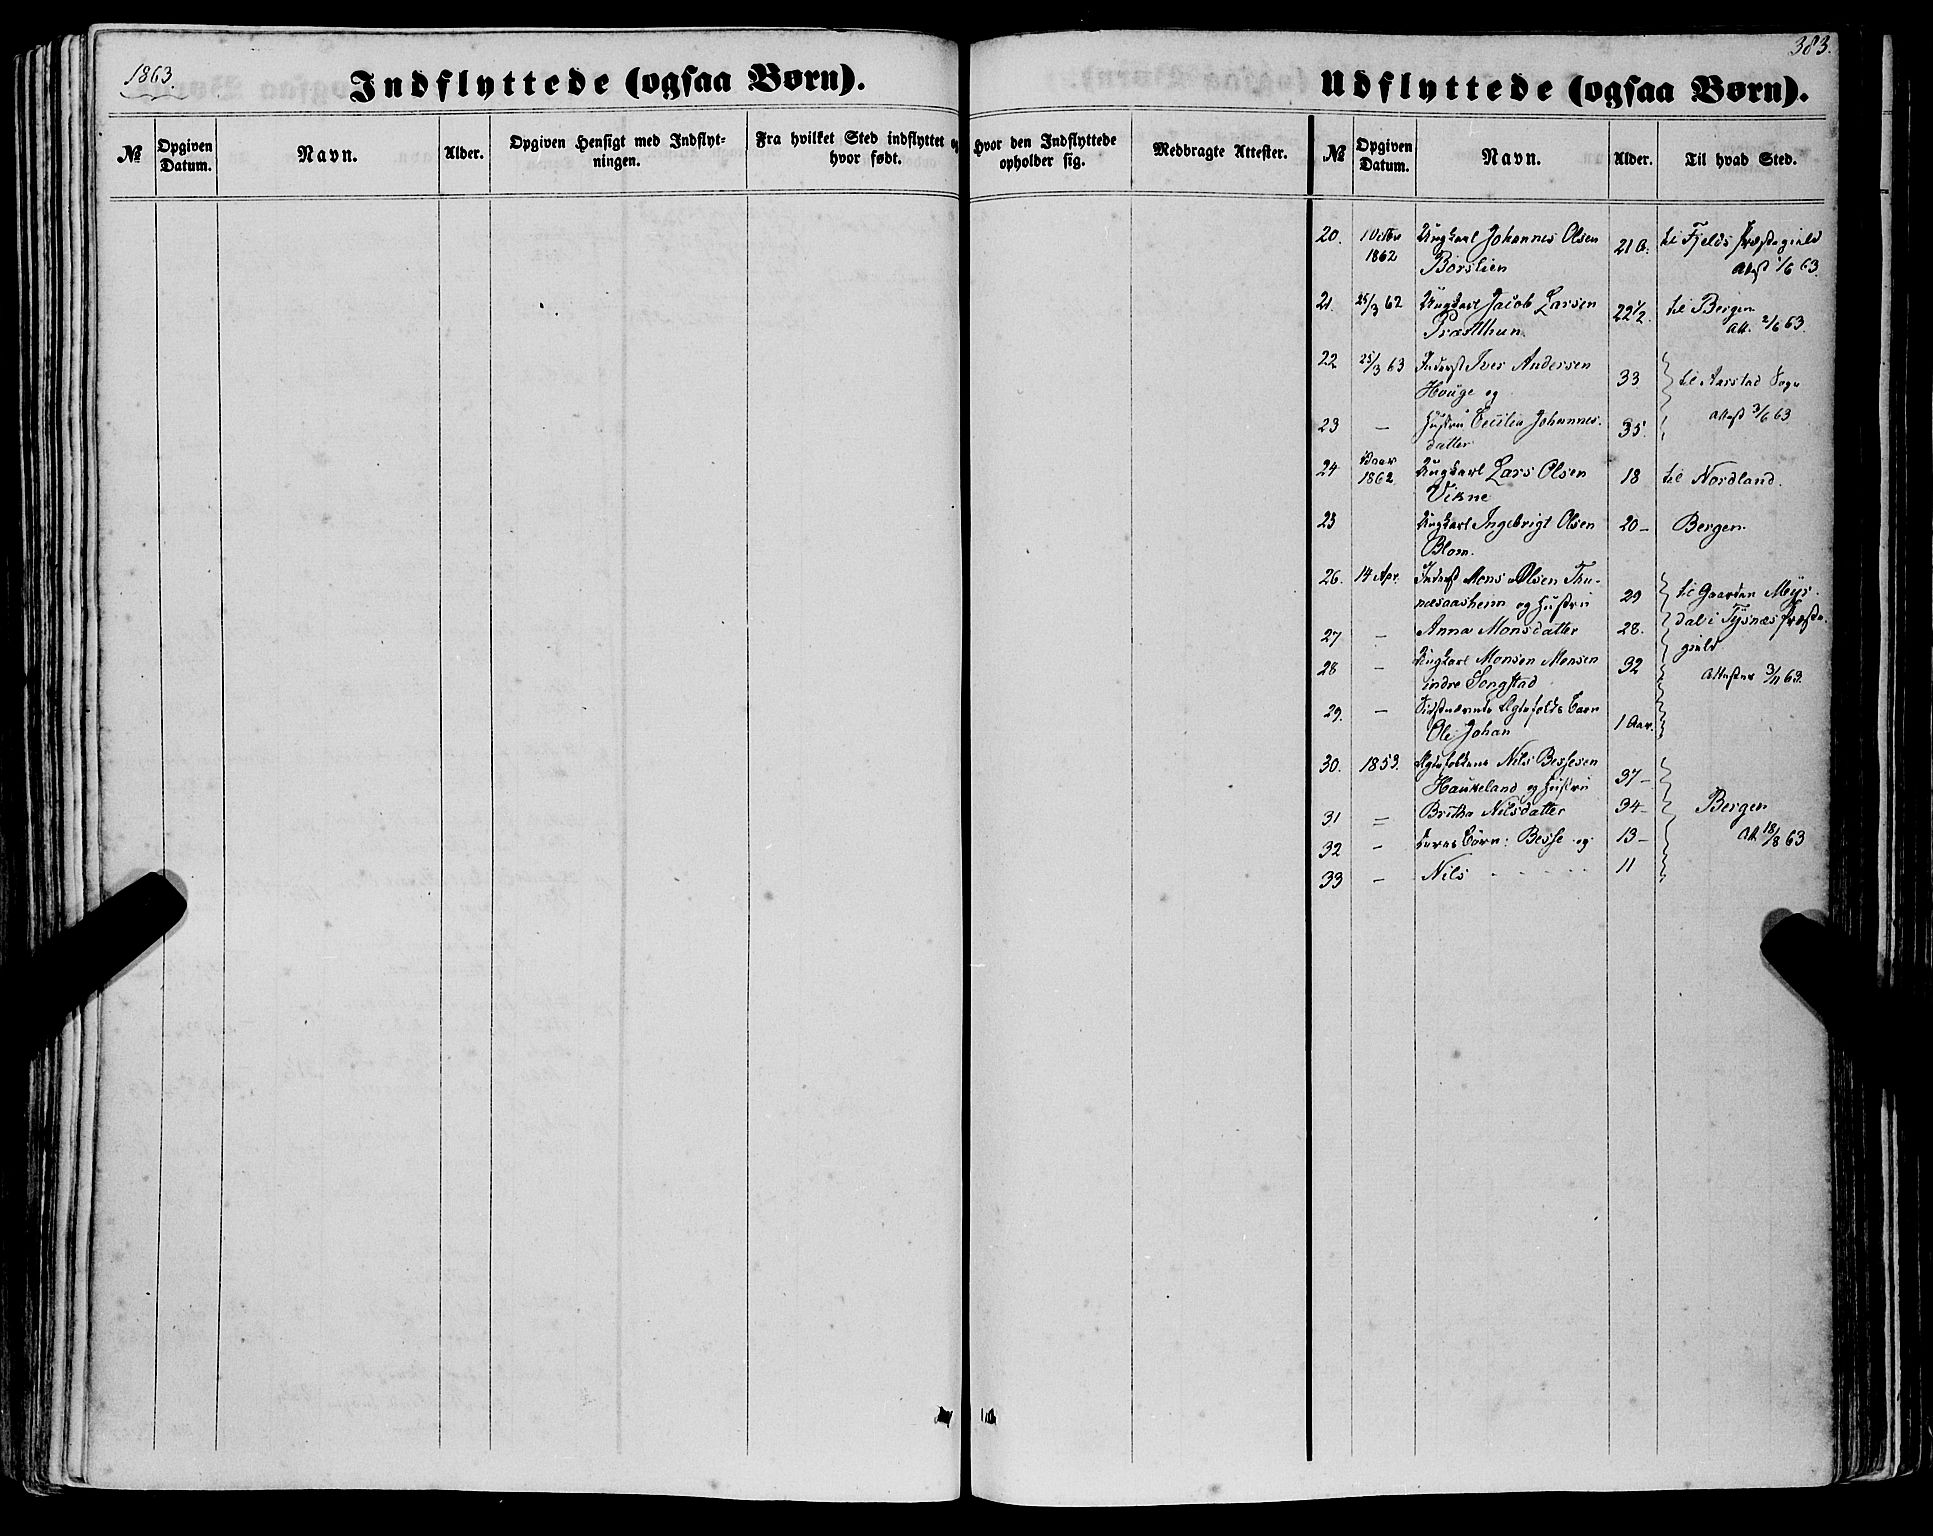 1863.
383.
Indflyttede (ogsaa Børn).
Udflyttede (ogsaa Børn).
№
Opgiven Datum.
Navn.
Alder.
Opgiven Hensigt med Indflyt-
ningen.
Fra hvilket Sted indflyttet og
hvor født.
Hvor den Indflyttede
opholder sig.
Medbragte Attester.
№
Opgiven Datum.
Navn.
Alder.
Til hvad Sted.
20. 1 Octbr Ungkarl Johannes Olsen 21 til Fjelds Præstegield
1862 Børslien Attest 1/6 63.
21. 25/3 62 Ungkarl Jacob Larsen 22½ til Bergen
Præsthun Att. 2/6 63.
22 25/3 63 Inderst Iver Andersen 33 til Aarstad Sogn
Houge og
23 — Hustru Cecilia Johannes- 35. Attest 3/6 63
datter
24 Vaar Ungkarl Lars Olsen 18 til Nordland.
1862 Vikne
25 Ungkarl Ingebrigt Olsen 20 — Bergen.
Blom.
26. 14 Apr. Inderst Mons Olsen Thu- 29 til Gaarden Myr-
næsaasheim og Hustru
27 — Anna Monsdatter 28. dal i Tysnæs Præste-
gield
28 — Ungkarl Monsen Monsen 32 Attester 3/11 63.
indre Songstad
29. — Sidstnævnte Ægtefolks Barn 1 Aar.
Ole Johan
30. 1853. Ægtefolkene Nils Bessesen 37 —
Haukeland og Hustru
31 = Britha Nilsdatter 34 — Bergen
32 — deres Børn: Besse og 13 — Att. 18/8 63
33 — Nils 11